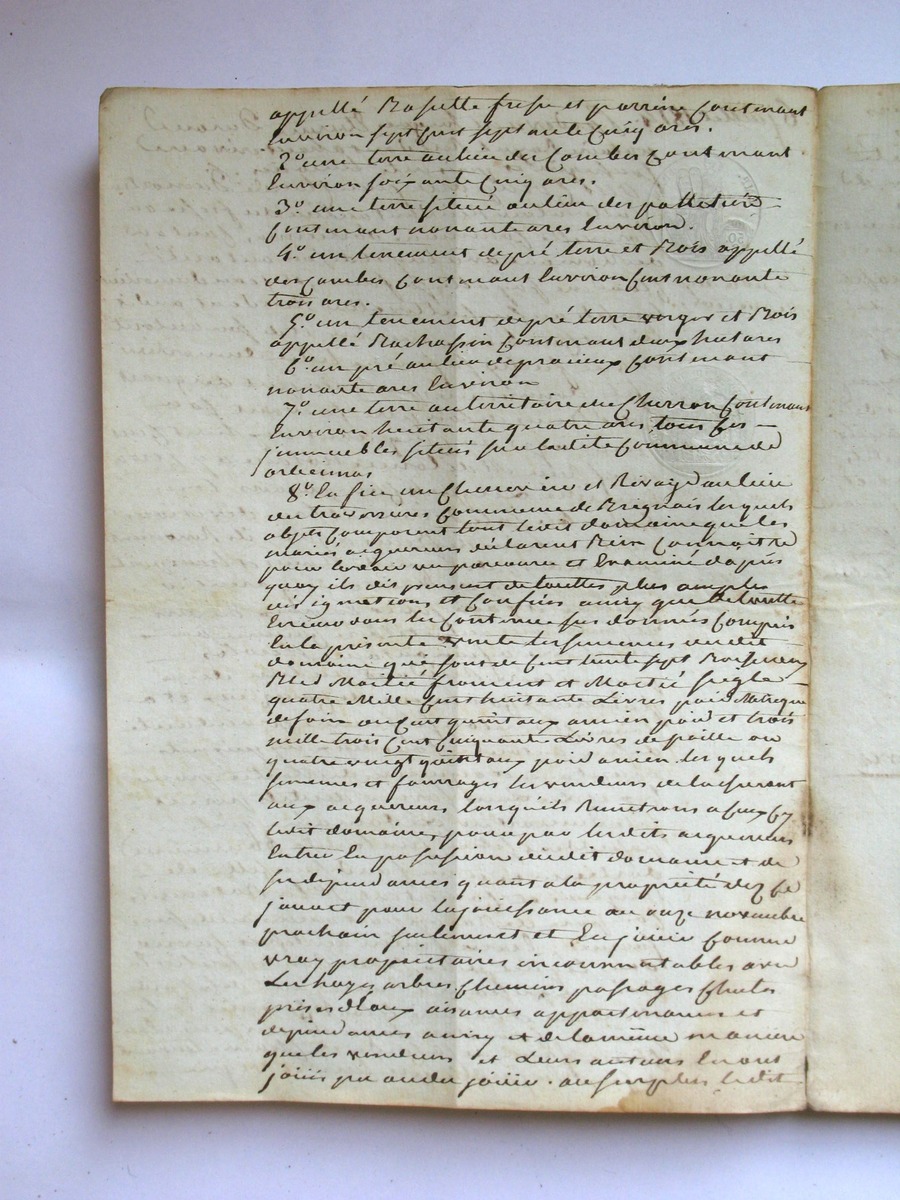 appellé Baselle fraise et parrine Contenant
Environ Sept Cent Septante Cinq ares.
2.o une terre au lieu des Combes Contenant
Environ Soixante Cinq ares.
3.o une terre Située au lieu des Contenant nonante ares Environ.
4.o un tenement de pré terre et Bois appellé
des Combes Contenant Environ Cent nonante
trois ares.
5.o un tenement de pré terre verger et Bois
appellé Contenant deux hectares
6.o un pré au lieu de Contenant
nonante ares Environ
7.o une terre au territoire du Contenant
Environ huitante quatre ares, tous Ces
immeubles Situés Sur la dite Commune de
8.o Enfin un Cheneviere et au lieu
des Commune de lesquels
objets Composent tout ledit domaine que les
mariés acquereurs déclarent Bien Connoitre
pour L'avoir vu parcouru et Examiné d'après
quoy ils dispensent de touttes plus amples
désignations et Confins ainsy que de toutte
Erreur dans les Contenues Sus données Compris
En la présente vente les Semences dudit
domaine qui Sont de Cent trente Sept
Bled Moitié froment et Moitié Seigle
quatre Mille Cent huitante Livres poid
de foin ou Cent quintaux ancien poid et trois
mille trois Cent Cinquante Livres de paille ou
quatre vingt quintaux poid ancien. les quels
Semences et fourrages les vendeurs delaisseront
aux acquereurs lorsqu'ils Remetrons a Ceux Cy
ledit domaine, pour par lesdits acquereurs
Entrer En possession dudit domaine et de
Ses dépendances quant a la propriété dez Ce
jourd'huy pour la jouissance au onze novembre
prochain Seulement et En jouir Comme
vray propriétaires incommutables avec
Les hayes arbres Chemins passages Chutes
prises d'Eaux aisances appartenances et
dependances ainsy et de la même maniere
que les vendeurs et Leurs auteurs En ont
jouis pu ou du jouir. au Surplus Ledit